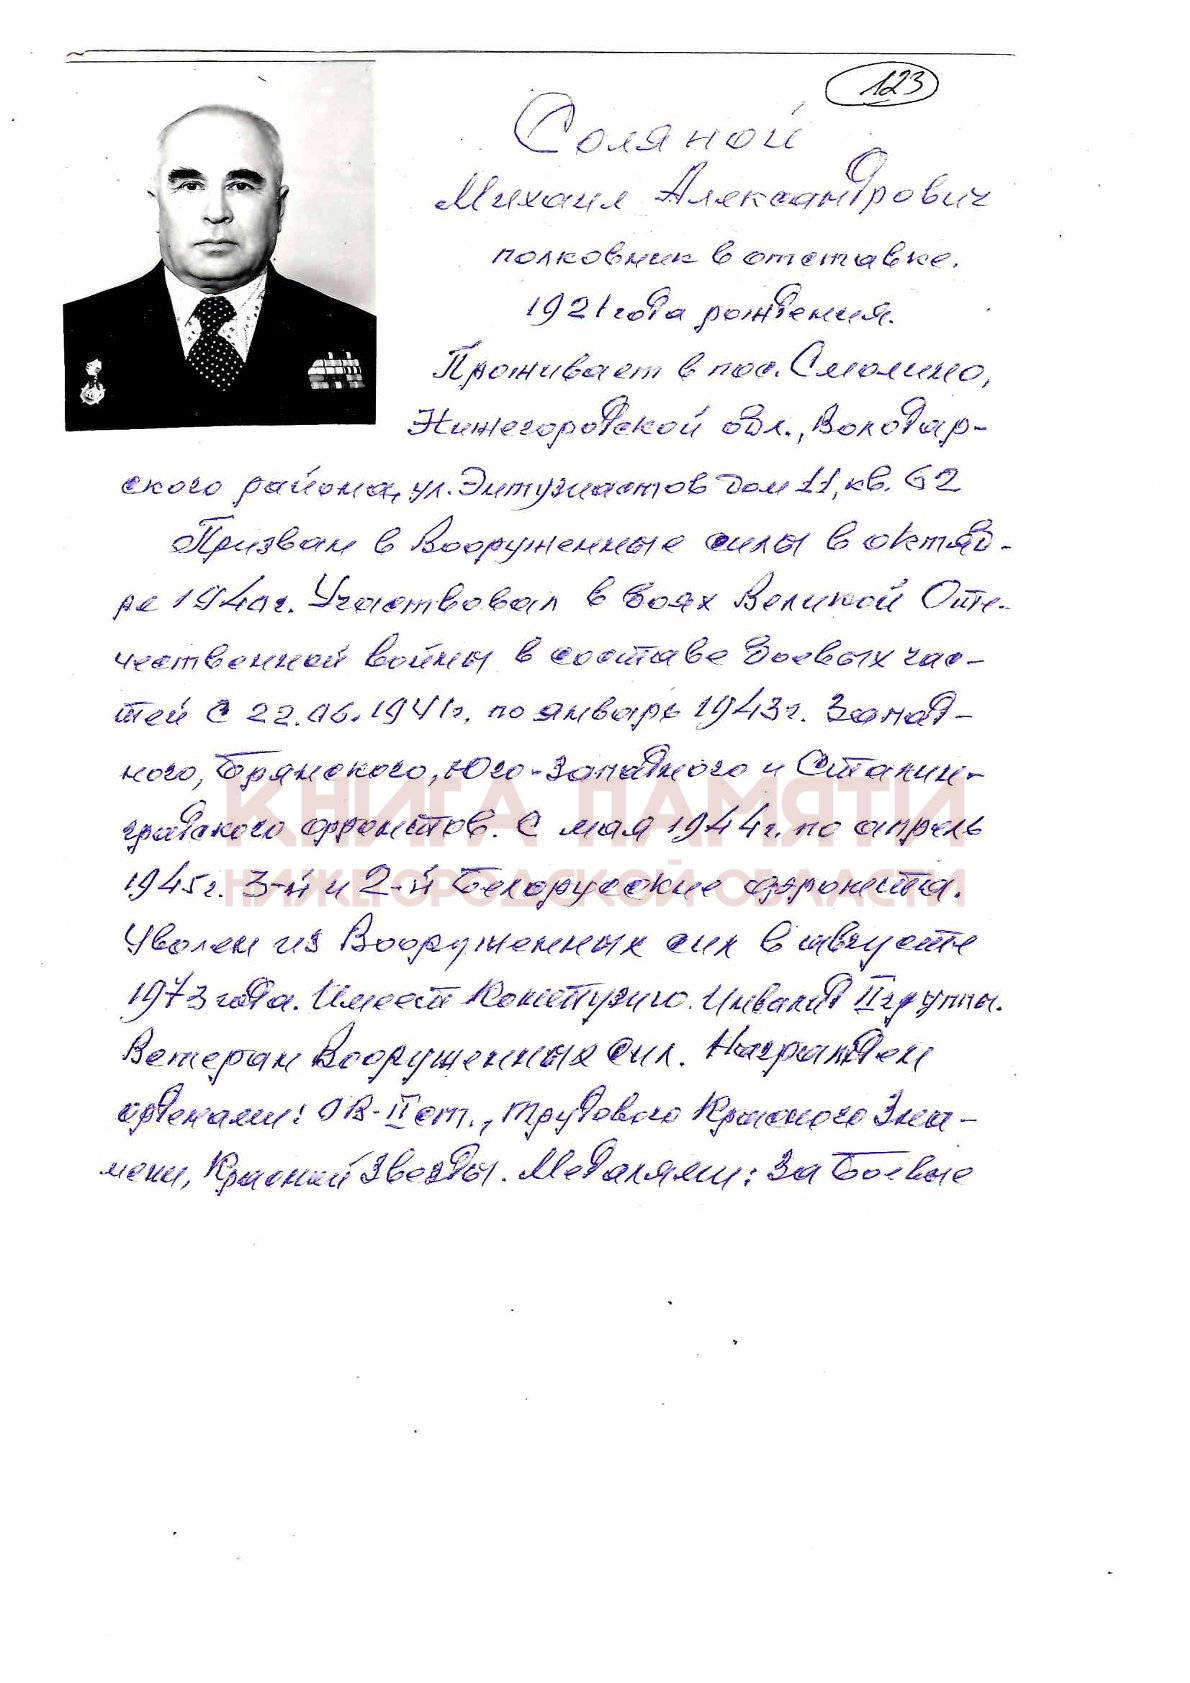 123
Соляной
Михаил Александрович
полковник в отставке.
1921 года рождения.
Проживает в пос. Смолино,
Нижегородской обл., Володар-
ского района, ул. Энтузиастов дом 11, кв. 62
Призван в Вооруженные силы в октяб-
ре 1940 г. Участвовал в боях Великой Оте-
чественной войны в составе боевых час-
тей с 22.06.1941 г. по январь 1943 г. Запад-
ного, Брянского, Юго-Западного и Сталин-
градского фронтов. С мая 1944 г. по апрель
1945 г. 3-й и 2-й Белорусские фронта.
Уволен из Вооруженных сил в августе
1973 года. Имеет Контузию. Инвалид II группы.
Ветеран Вооруженных Сил. Награжден
орденами: ОВ-II ст., Трудового Красного Зна-
мени, Красной Звезды. Медалями: За боевые
КНИГА ПАМЯТИ
НИЖЕГОРОДСКОЙ ОБЛАСТИ